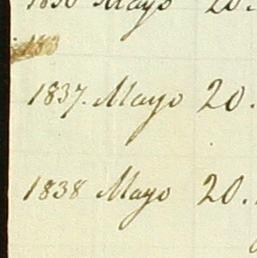 1836 Mayo 20.
183
1837. Mayo 20.
1838 Mayo 20.